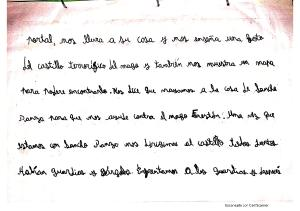 portal, nos lleva a su casa y nos enseña una foto
del castillo terrorífico del mago y también nos muestra un mapa
para poder encontrarlo. Nos dice que vayamos a la casa de Sancho
Panza para que nos ayude contra el mago Frestón. Una vez que
estamos con Sancho Panza nos dirigimos al castillo todos juntos.
Habían guardias y Espantamos a los guardias y
Escaneado con CamScanner